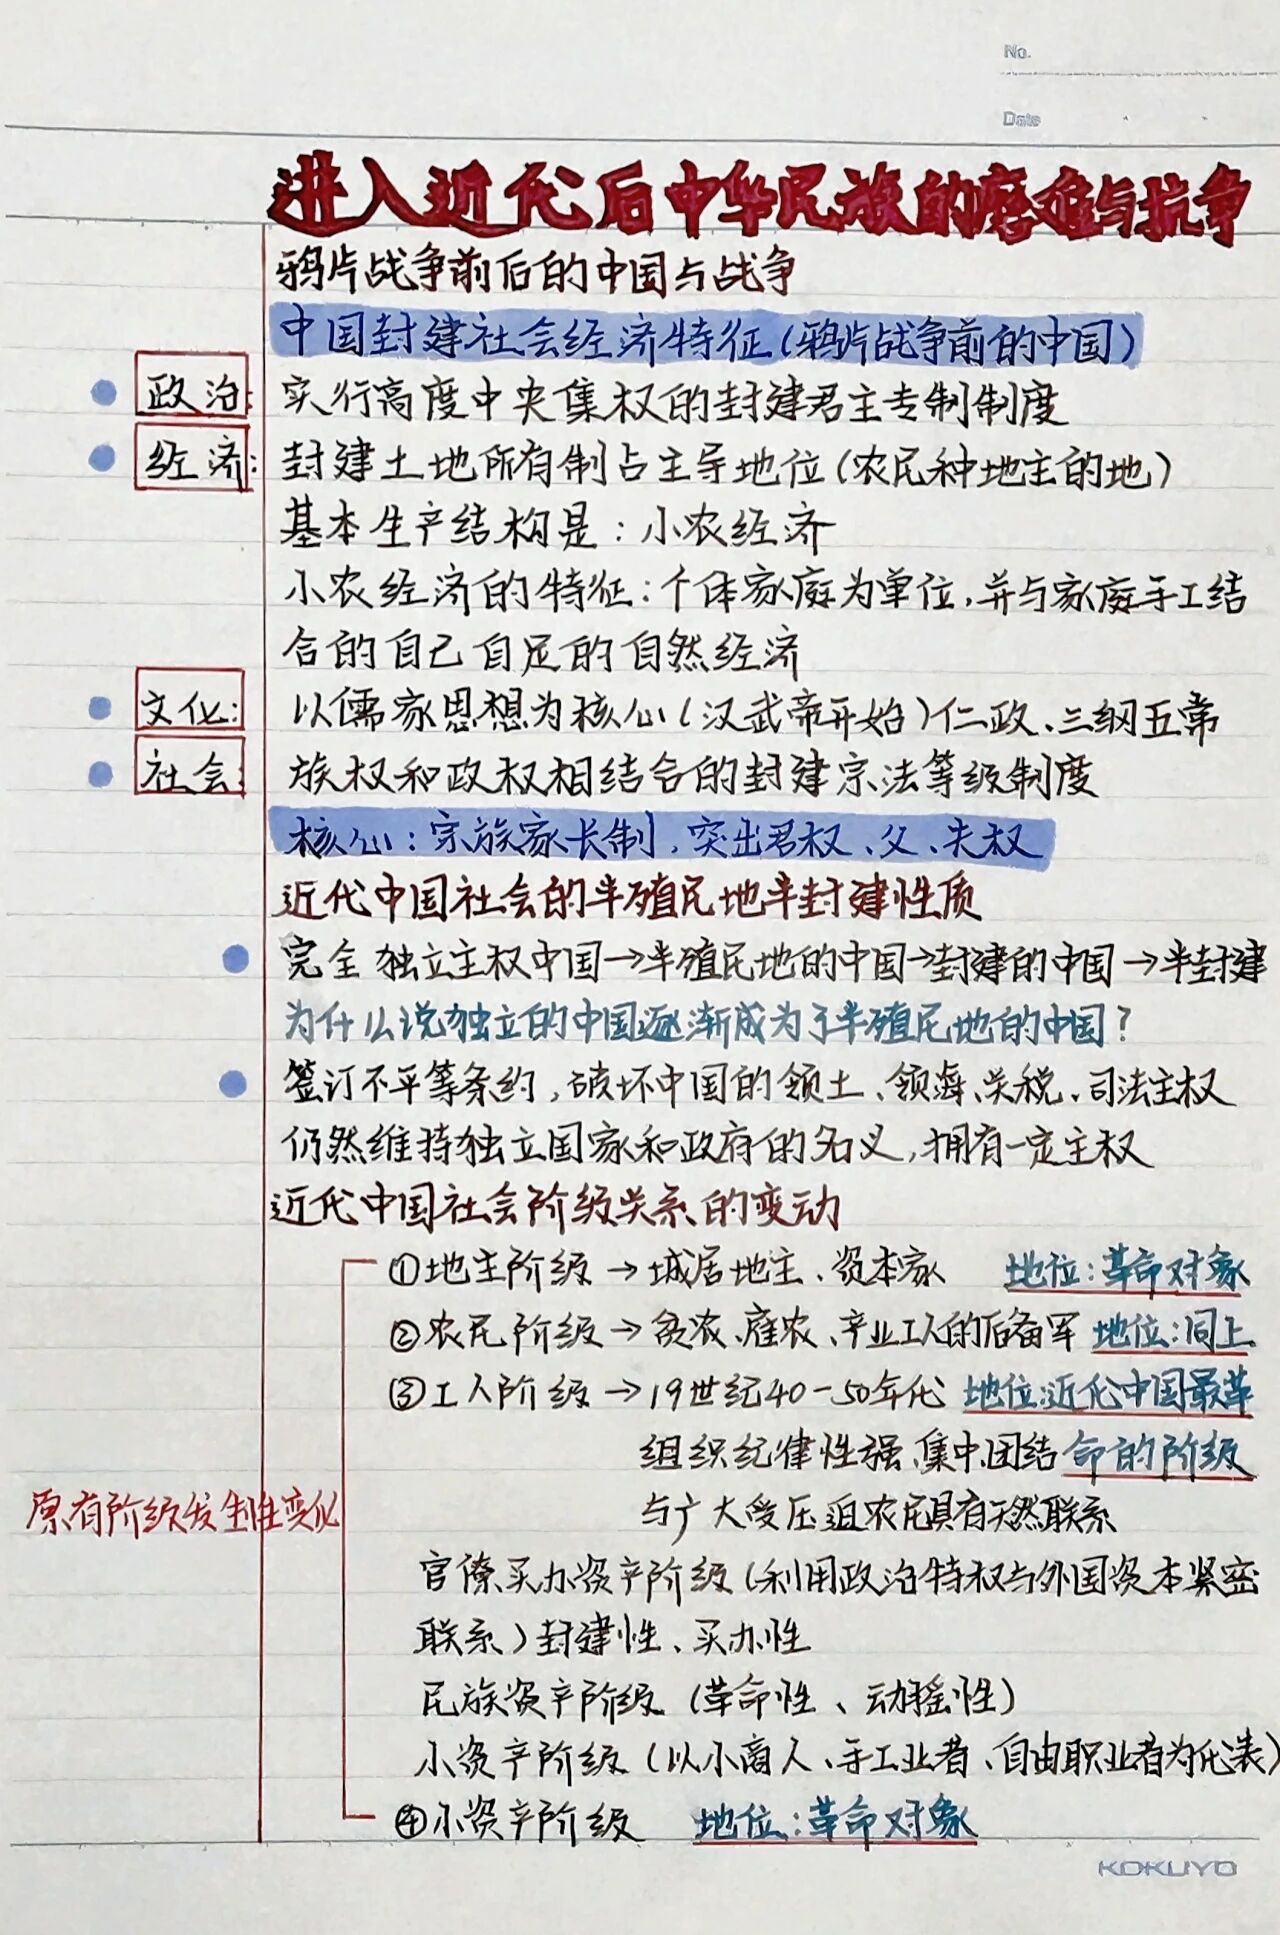 No.
Date
进入近代后中华民族的磨难与抗争
鸦片战争前后的中国与战争
中国封建社会经济特征(鸦片战争前的中国)
政治: 实行高度中央集权的封建君主专制制度
经济: 封建土地所有制占主导地位(农民种地主的地)
基本生产结构是:小农经济
小农经济的特征:个体家庭为单位,并与家庭手工结
合的自己自足的自然经济
文化: 以儒家思想为核心(汉武帝开始)仁政、三纲五常
社会: 族权和政权相结合的封建宗法等级制度
核心:宗族家长制,突出君权、父、夫权
近代中国社会的半殖民地半封建性质
完全独立主权中国→半殖民地的中国→封建的中国→半封建
为什么说独立的中国逐渐成为了半殖民地的中国?
签订不平等条约,破坏中国的领土、领海、关税、司法主权
仍然维持独立国家和政府的名义,拥有一定主权
近代中国社会阶级关系的变动
①地主阶级→城居地主、资本家 地位:革命对象
②农民阶级→贫农、雇农、产业工人的后备军 地位:同上
③工人阶级→19世纪40-50年代 地位:近代中国最革
组织纪律性强、集中团结 命的阶级
原有阶级发生性变化
与广大受压迫农民具有天然联系
官僚买办资产阶级(利用政治特权与外国资本紧密
联系)封建性、买办性
民族资产阶级(革命性、动摇性)
小资产阶级(以小商人、手工业者、自由职业者为代表)
④小资产阶级 地位:革命对象
KOKUYO